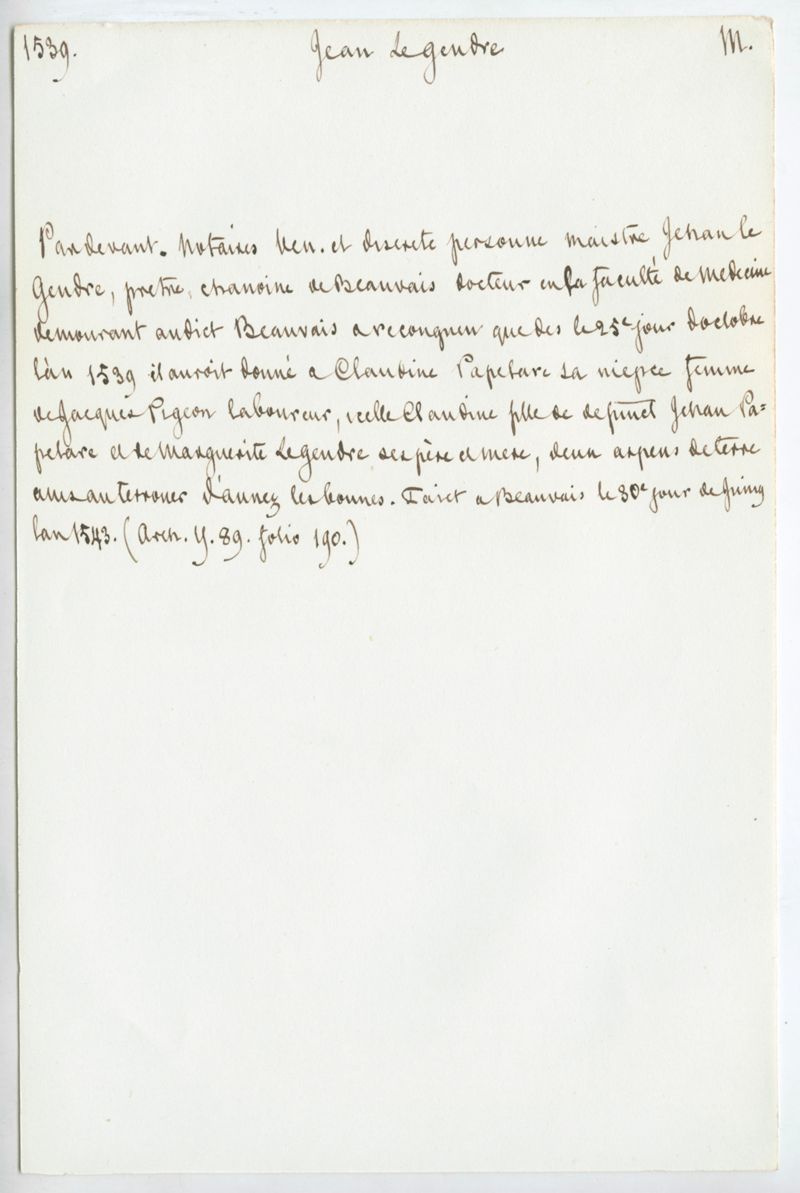 1539. Jean Legendre M.
Pardevant. Notaires Ven. et discrete personne maistre Jehan le
Gendre, pretre, chanoine de Beauvais docteur en la faculté de Medecine
demourant audict Beauvais a recongneu que des le 25e jour doctobre
l'an 1539 il auroit donné a Claudine Papelare sa niepce femme
de Jacques Pigeon laboureur, icelle Claudine fille de defunct Jehan Pa=
pelare et de Marguerite Legendre ses père et mere, deux arpens de terre
assis au terrouer d'annez les bonnes. Faict a Beauvais le 30e jour de Juing
lan 1543. (Arch. Y. 89. folio 190.)